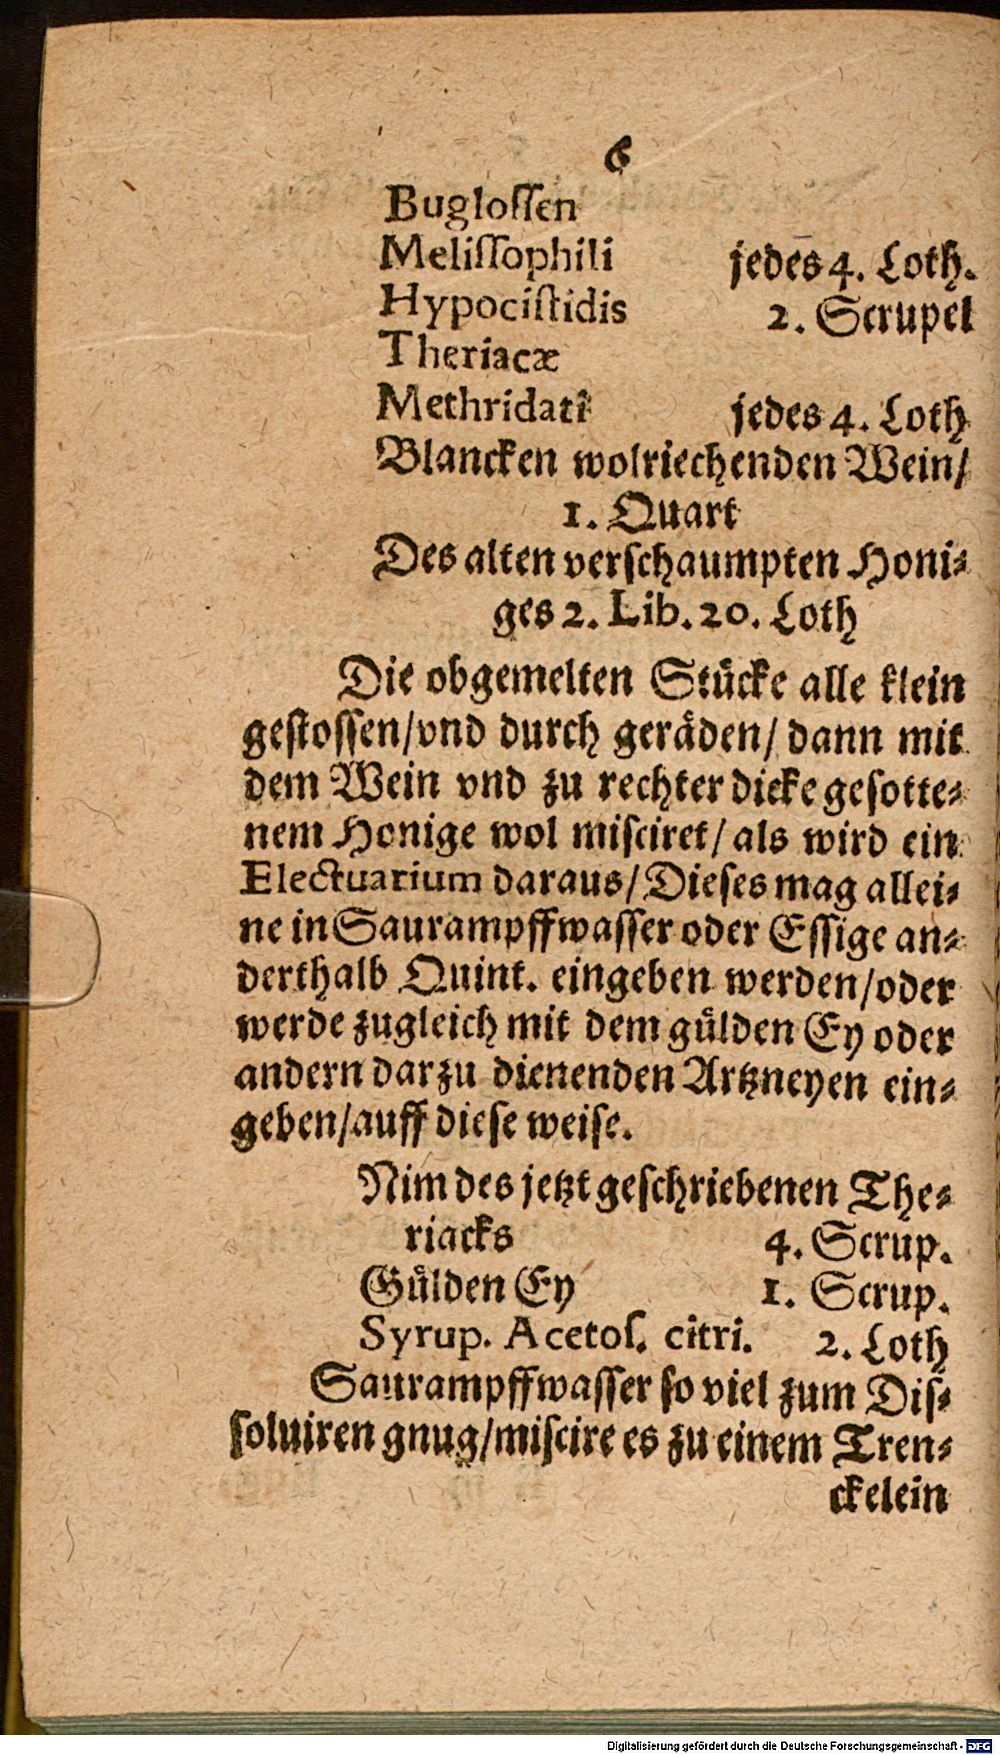 6
Bugloſſen
Meliſſophili jedes 4. Loth.
Hypociſtidis 2. Scrupel
Theriacæ
Methridati jedes 4. Loth
Blancken wolriechenden Wein/
1. Quart
Des alten verſchaumpten Honi⸗
ges 2. Lib. 20. Loth
Die obgemelten Stuͤcke alle klein
geſtoſſen/vnd durch geraͤden/ dann mit
dem Wein vnd zu rechter dicke geſotte⸗
nem Honige wol miſciret/ als wird ein
Electuarium daraus/ Dieſes mag allei⸗
ne in Saurampffwaſſer oder Eſſige an⸗
derthalb Quint. eingeben werden/oder
werde zugleich mit dem guͤlden Ey oder
andern darzu dienenden Artzneyen ein⸗
geben/auff dieſe weiſe.
Nim des jetzt geſchriebenen The⸗
riacks 4. Scrup.
Guͤlden Ey 1. Scrup.
Syrup. Acetoſ. citri. 2. Loth
Saurampffwaſſer ſo viel zum Diſ⸗
ſoluiren gnug/miſcire es zu einem Tren⸗
ckelein
Digitalisierung gefördert durch die Deutsche Forschungsgemeinschaft - DFG